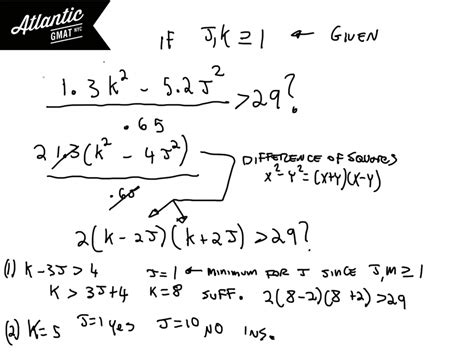 Atlantic
GMAT NYC
IF J,K ≥ 1 ← GIVEN
1.3K² - 5.2J² > 29?
.65
2 1.3(K² - 4J²)
.65
DIFFERENCE OF SQUARES
X²-Y²=(X+Y)(X-Y)
2(K-2J)(K+2J) > 29?
(1) K-3J > 4 J=1 ← MINIMUM FOR J SINCE J,M ≥ 1
K > 3J+4 K=8 SUFF. 2(8-2)(8+2) > 29
(2) K=5 J=1 YES J=10 NO INS.